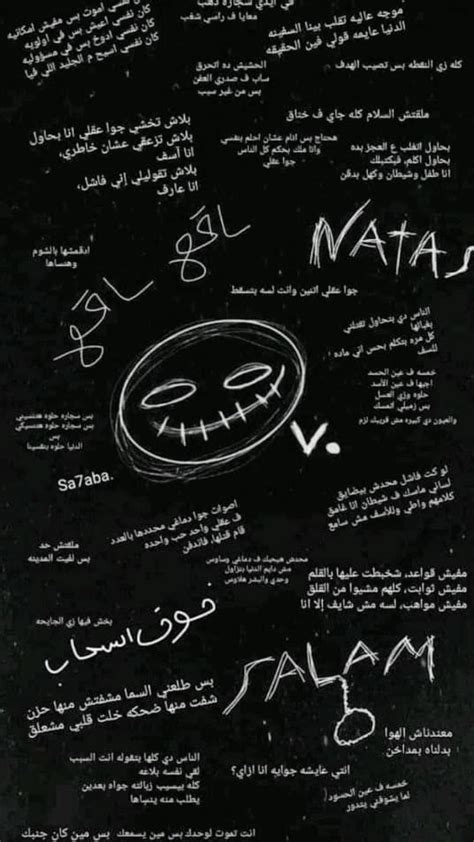 كان نفسي اموت بس مفيش امكانيه
كان نفسي اعيش بس في اولويه
كان نفسي ادوخ بس في مسؤوليه
كان نفسي اسبح م الجليد اللي فيا
ف ايدي سجاره ذهب
معايا ف راسي شغب
موجه عاليه تقلب بينا السفينه
الدنيا عايمه قولي فين الحقيقه
الحشيش ده اتحرق
ساب ف صدري العفن
بس من غير سبب
كله زي النقطه بس تصيب الهدف
ملقتش السلام كله جاي ف خناق
بلاش تخشي جوا عقلي انا بحاول
بلاش تزعقي عشان خاطري,
انا آسف
بلاش تقوليلي إني فاشل,
انا عارف
هحتاج بس انام عشان احلم بنفسي
وانا ملك بحكم كل الناس
جوا عقلي
بحاول اتغلب ع العجز بده
بحاول اكلم, فبكتبلك
انا طفل وشيطان وكهل بدقن
NATAS
ادقمشها بالشوم
وهنساها
جوا عقلي اتنين وانت لسه بتسقط
الناس دي بتحاول تقتلني
بغبائها
كل مره بتكلم بحس اني ماده
للسف
خمسه ف عين الحسد
اجبها ف عين الأسد
حلوه وزي العسل
بس زميلي المسك
والعيون دي كبيره مش قريبك لزم
بس سجاره حلوه هتنسيني
بس سجاره حلوه هتسيكي
بس
الدنيا حلوه بنفسينا
v.
Sa7aba.
لو كت فاشل محدش بيضايق
لساني ماسك ف شيطان انا غامق
كلامهم واطي وللأسف مش سامع
اصوات جوا دماغي محددها بالعدد
ف عقلي واحد حب واحده
قام قتلها, فاندفن
ملقتش حد
بس لقيت المدينه
محدش هيحبك ف دماغي وساوس
مش دايم الدنيا بتزاول
وحدي والبشر هلاوس
مفيش قواعد, شخبطت عليها بالقلم
مفيش ثوابت, كلهم مشيوا من القلق
مفيش مواهب, لسه مش شايف إلا انا
بخش فيها زي الجايحه
فوق السحاب
SALAM
بس طلعتي السما مشفتش منها حزن
شفت منها ضحكه خلت قلبي مشعلق
معتدناش الهوا
بدلناه بمداخن
الناس دي كلها بتقوله انت السبب
لقى نفسه بلاعه
كله بيسيب زبالته جواه بعدين
يطلب منه ينساها
انتي عايشه جوايه انا ازاي؟
خمسه ف عين الحسود
لما يشوفني يتدور
انت تموت لوحدك بس مين يسمعك
بس مين كان جنبك